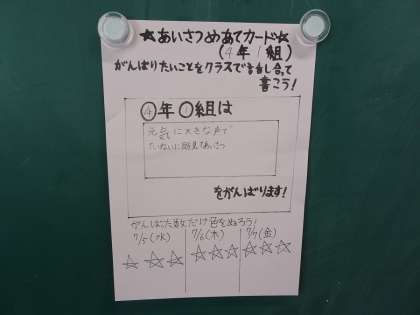 ☆あいさつめあてカード☆
(4年1組)
がんばりたいことをクラスで話し合って
書こう!
④年①組は
元気に大きな声で
ていねいに顔見てあいさつ
をがんばります!
がんばった数だけ色をぬろう!
7/5(水) 7/6(木) 7/7(金)
☆☆☆ ☆☆☆ ☆☆☆